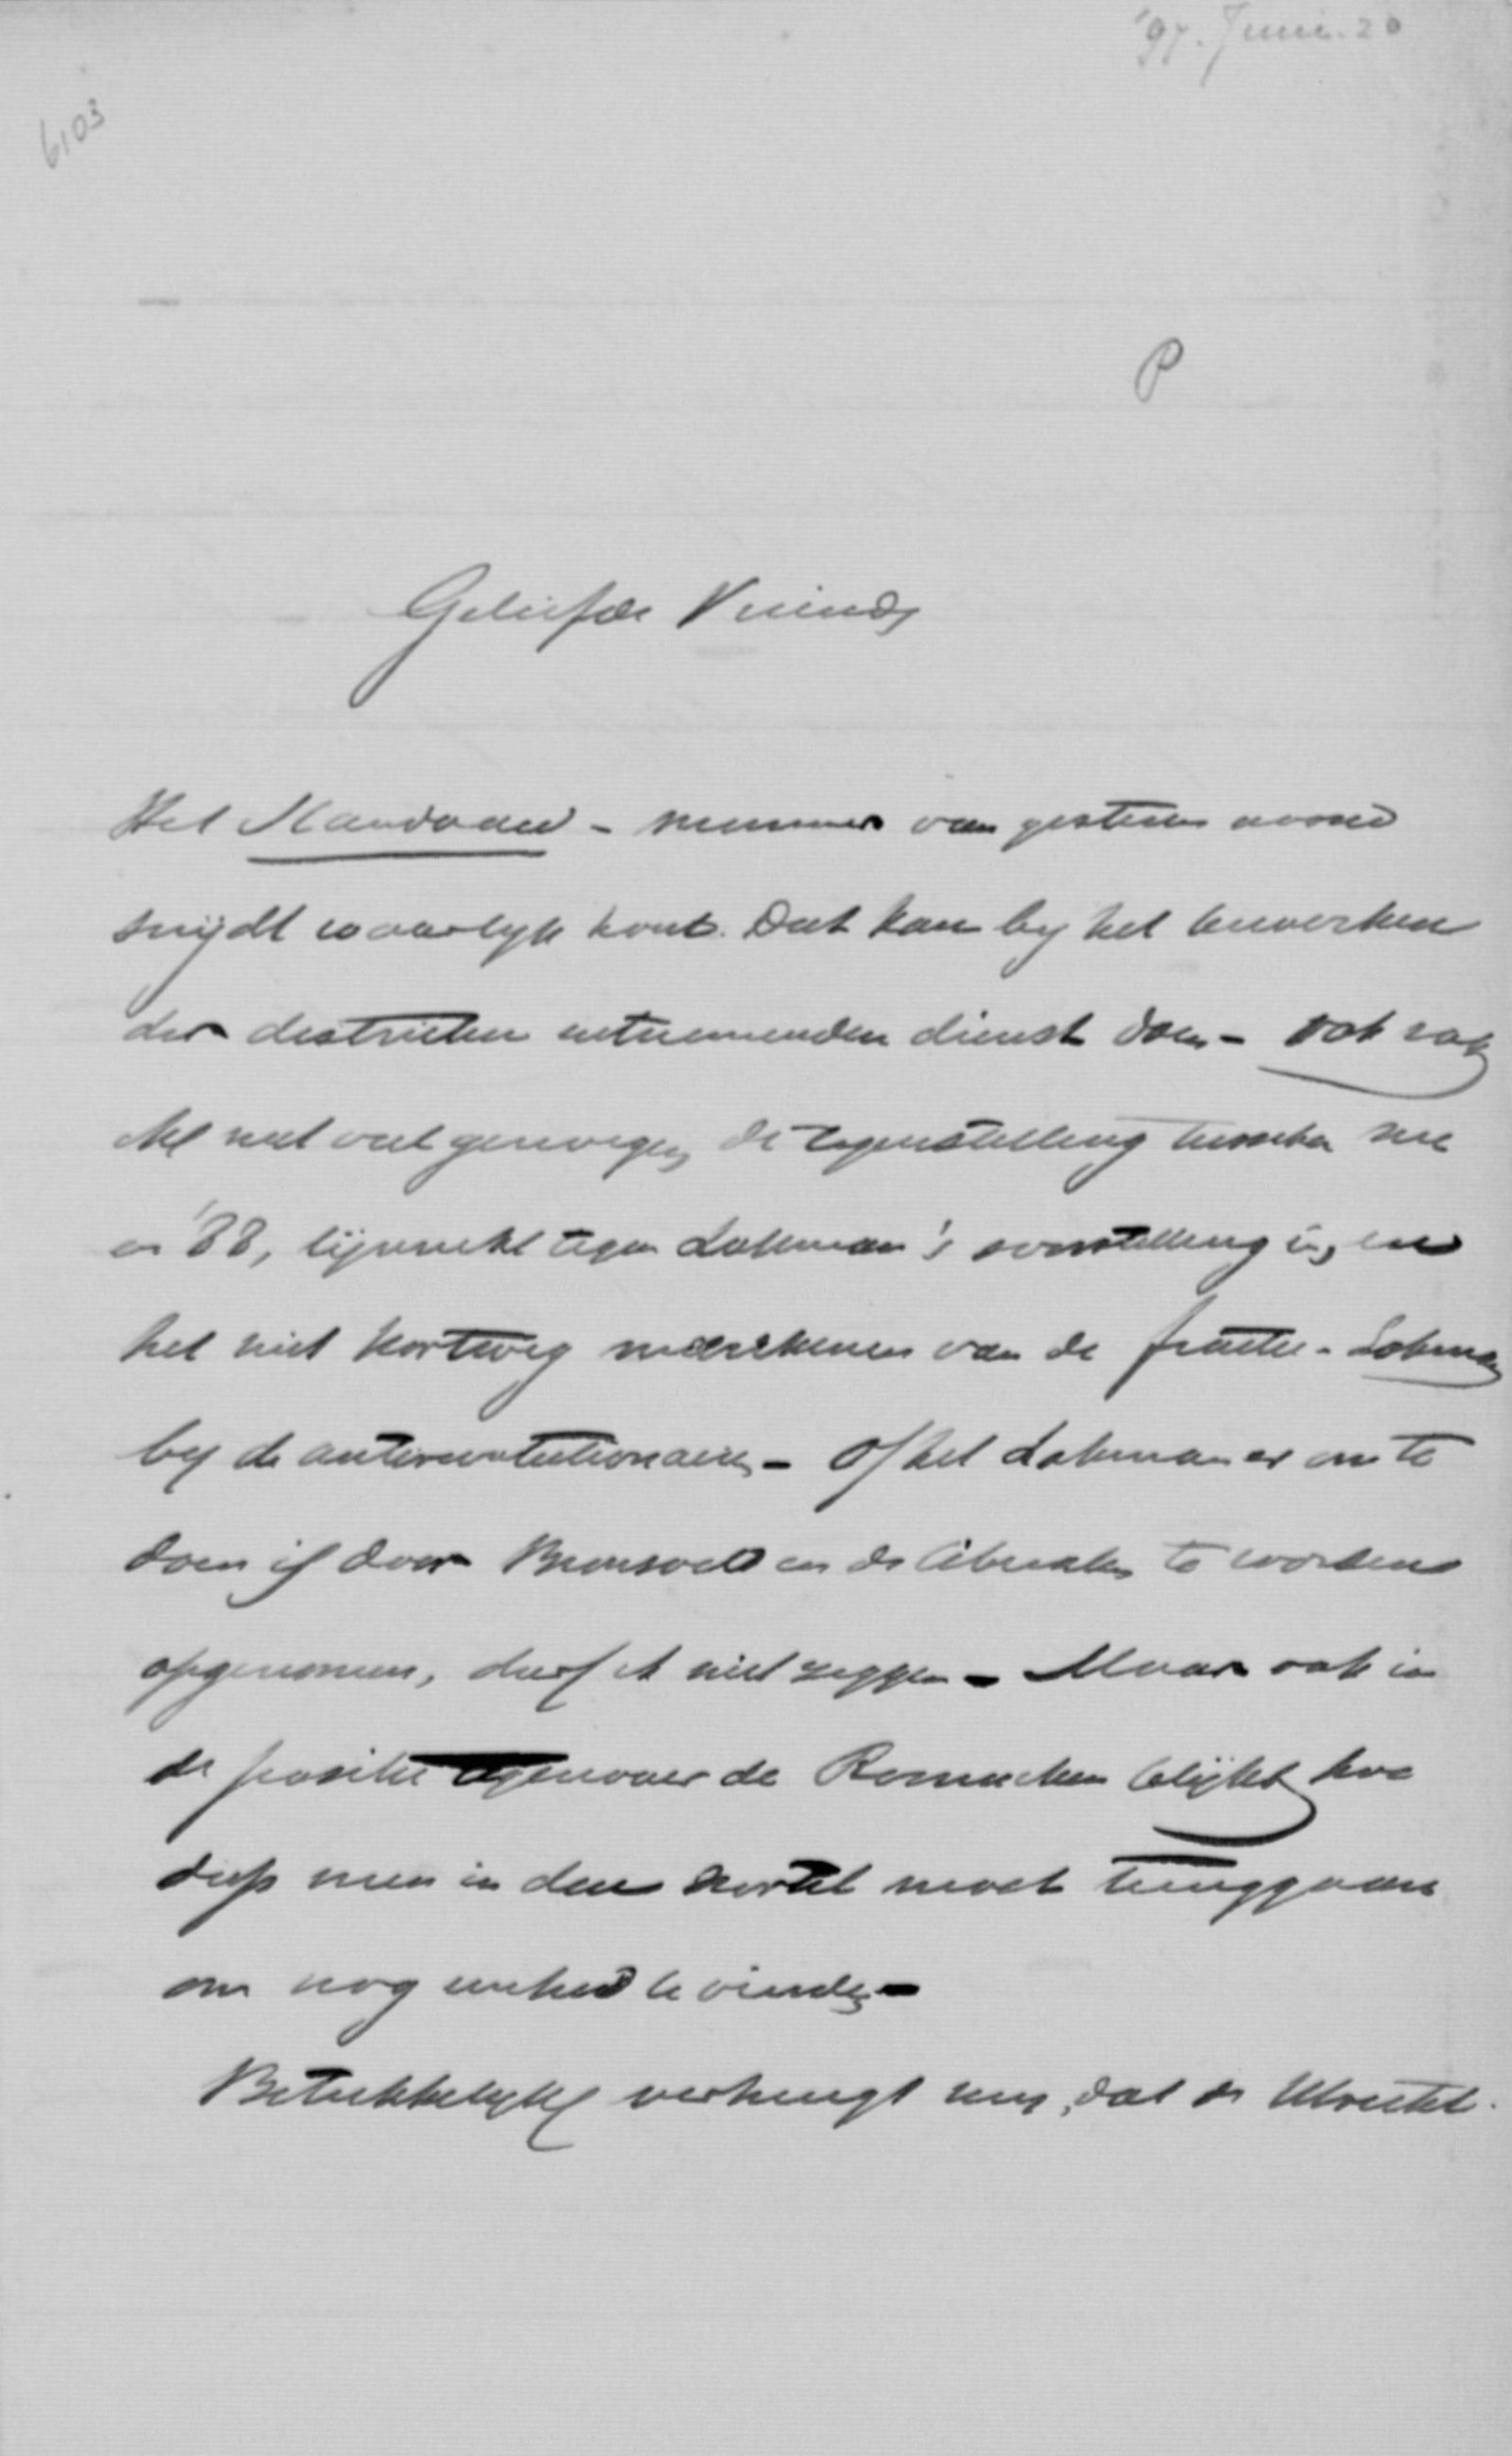 '97. Juni. 20
6103
P
Geliefde Vriend,
Het Standaard - nummer van gisteren avond
snijdt waarlijk hout. Dat kan bij het bewerken
der districten uitnemenden dienst doen - Ook zag
ik met veel genoegen de tegenstelling tusschen nu
en '88, lijnrecht tegen Lohman's voorstelling in, en
het niet kortweg meerekenen van de fractie - Lohman
bij de antirevolutionairen - Of het Lohman er om te
doen is door Bronsveld en de liberalen te worden
opgenomen, durf ik niet zeggen - Maar ook in
de positie tegenover de Roomschen blijkt, hoe
diep men in den wortel moet teruggaan
om nog eenheid te vinden -
Betrekkelijk verheugt mij, dat de Utrecht.